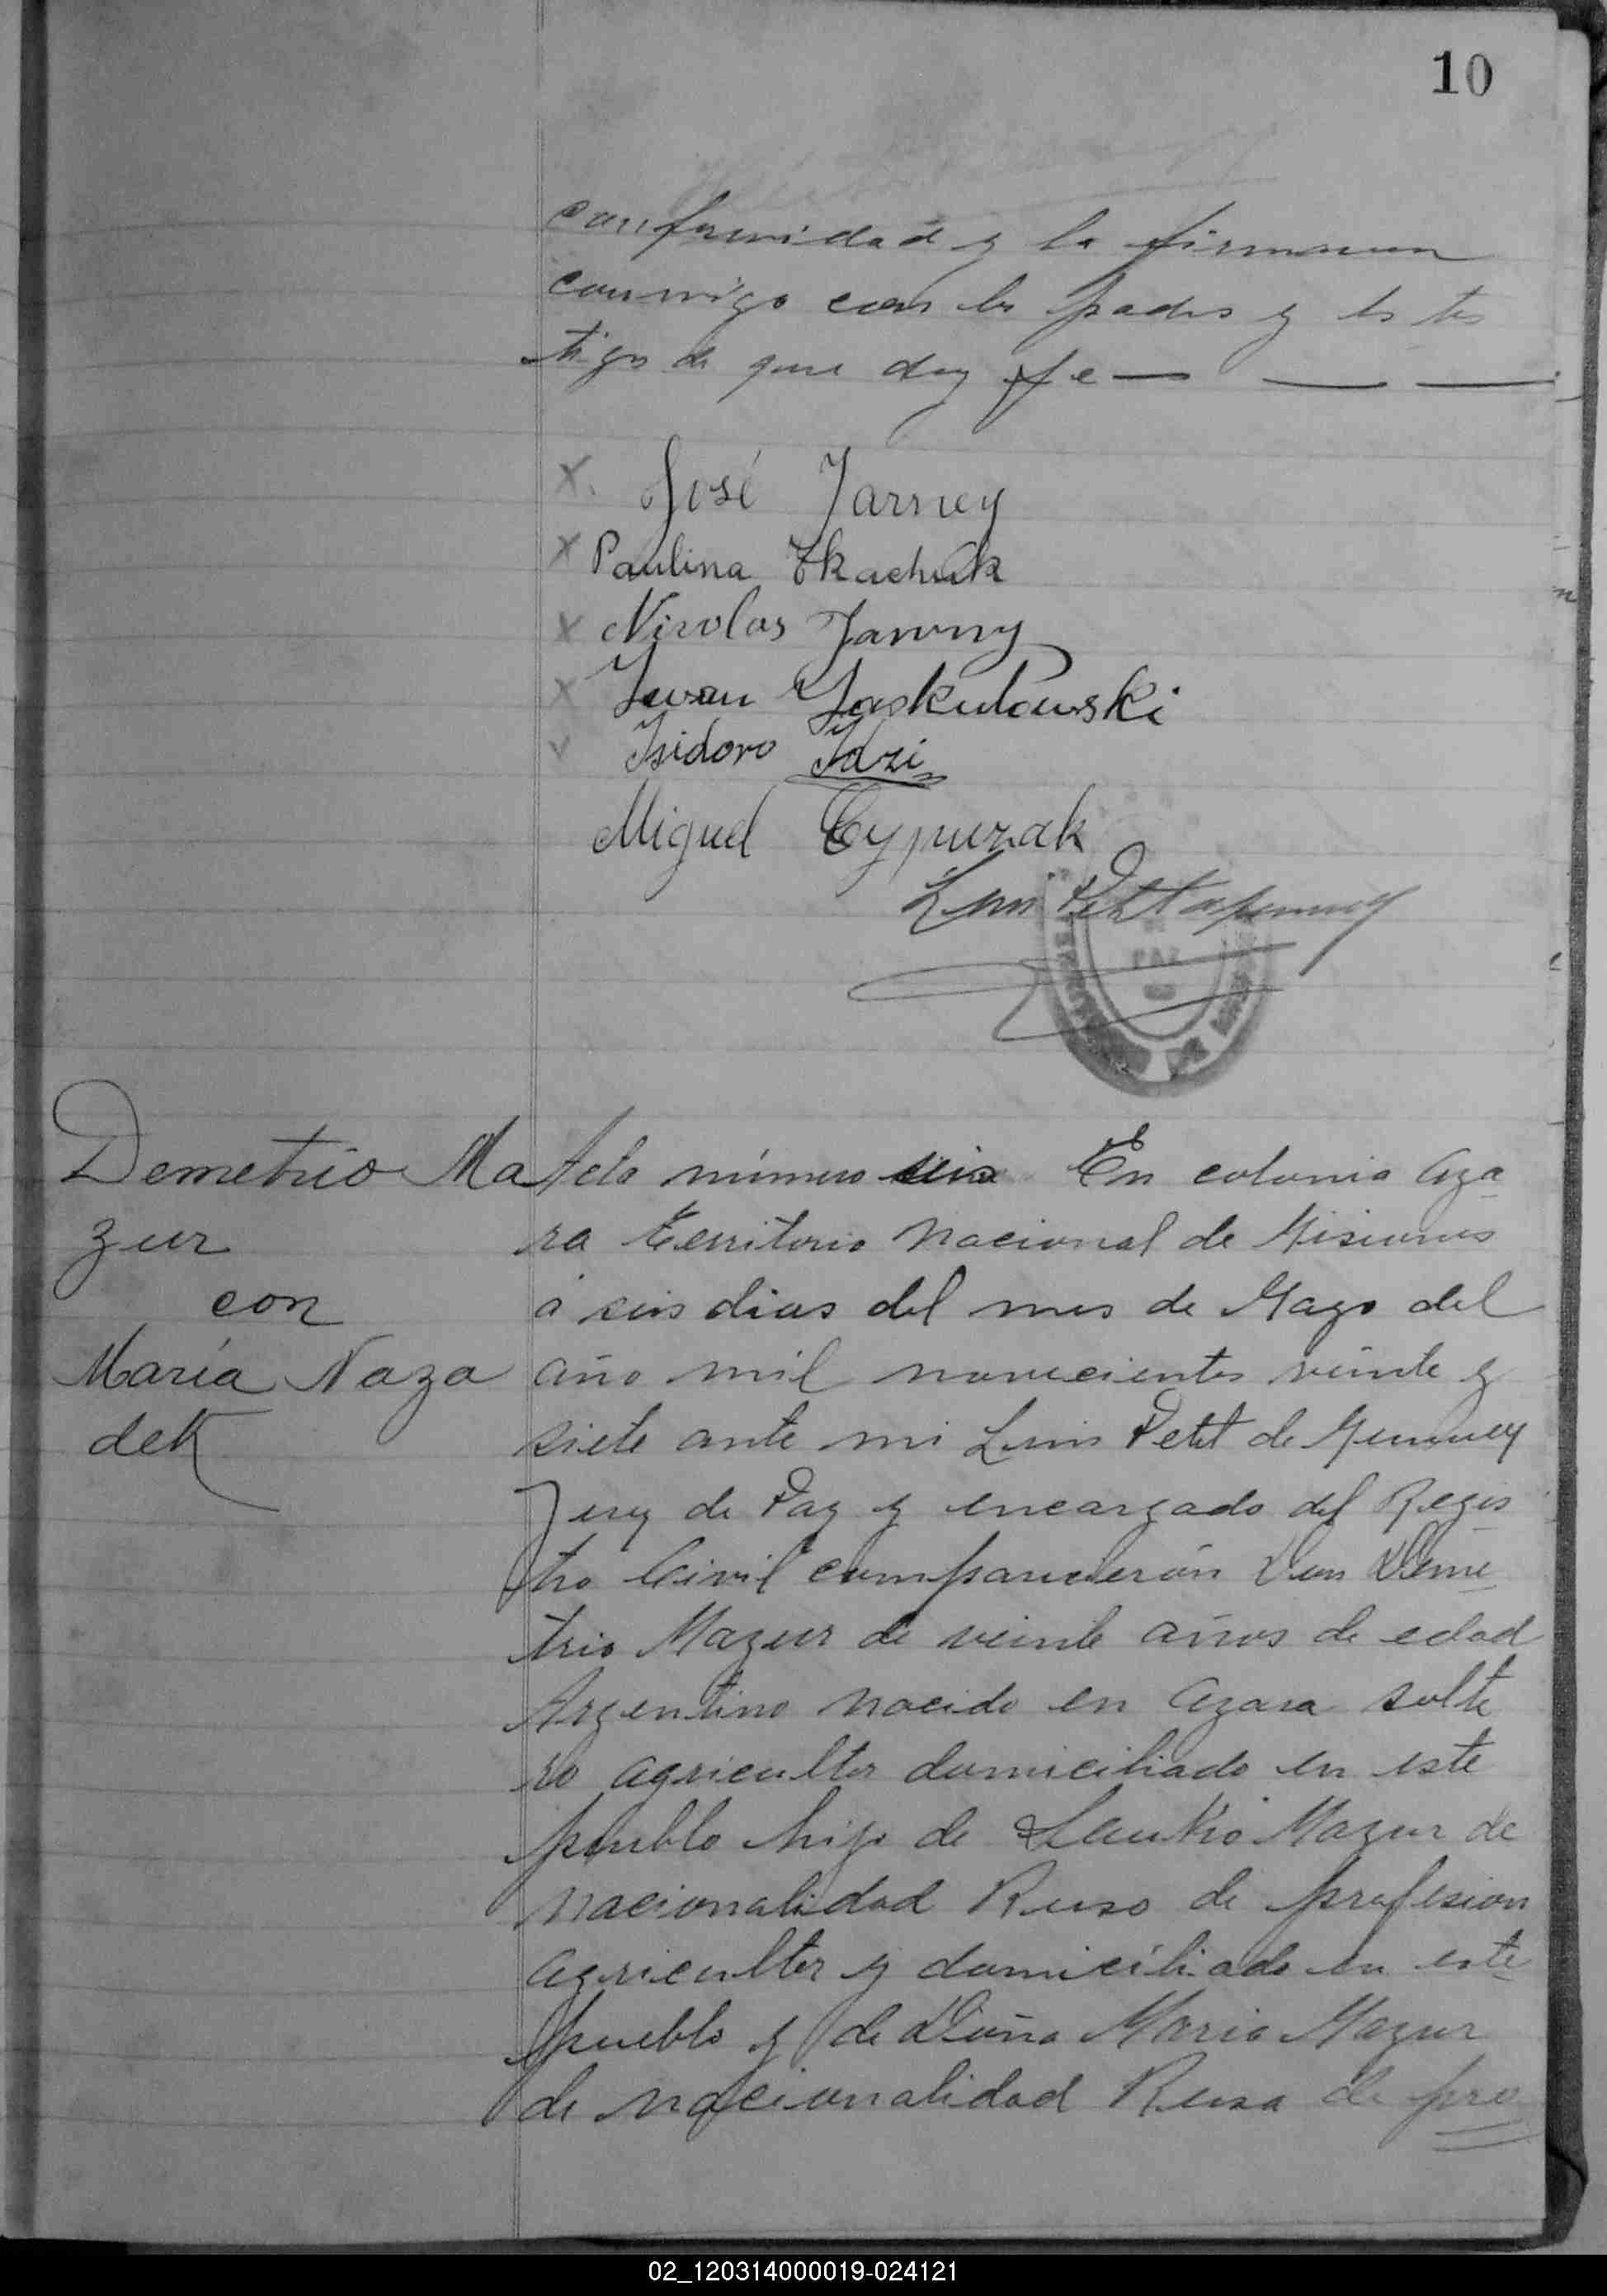 10
conformidad y la firmaron
conmigo con los padres y los tes
tigos de que doy fe
José Jarney
Paulina Tkachuk
Nicolas
Iwan Jaskulowski
Isidoro
Miguel
Luis Petit
PAZ
Demetrio Ma
zur
con
María Naza
dek
Acta número seis En colonia Aza
ra territorio Nacional de Misiones
á seis dias del mes de Mayo del
año mil novecientos veinte y
siete ante mi Luis Petit de Meurney
Juez de Paz y encargado del Regis
tro Civil comparecierón Don Deme
trio Mazur de veinte años de edad
Argentino nacido en Azara solte
ro agricultor domiciliado en este
pueblo hijo de Mazur de
nacionalidad Ruso de profesion
agricultor y domiciliado en este
pueblo y de Doña Maria Mazur
de nacionalidad Rusa de pro
02_120314000019-024121